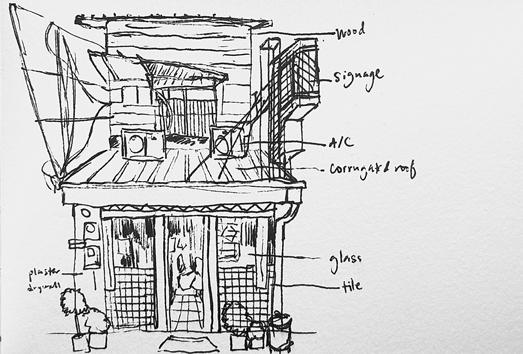 wood
signage
A/C
corrugated roof
14
glass
tile
plaster
drywall